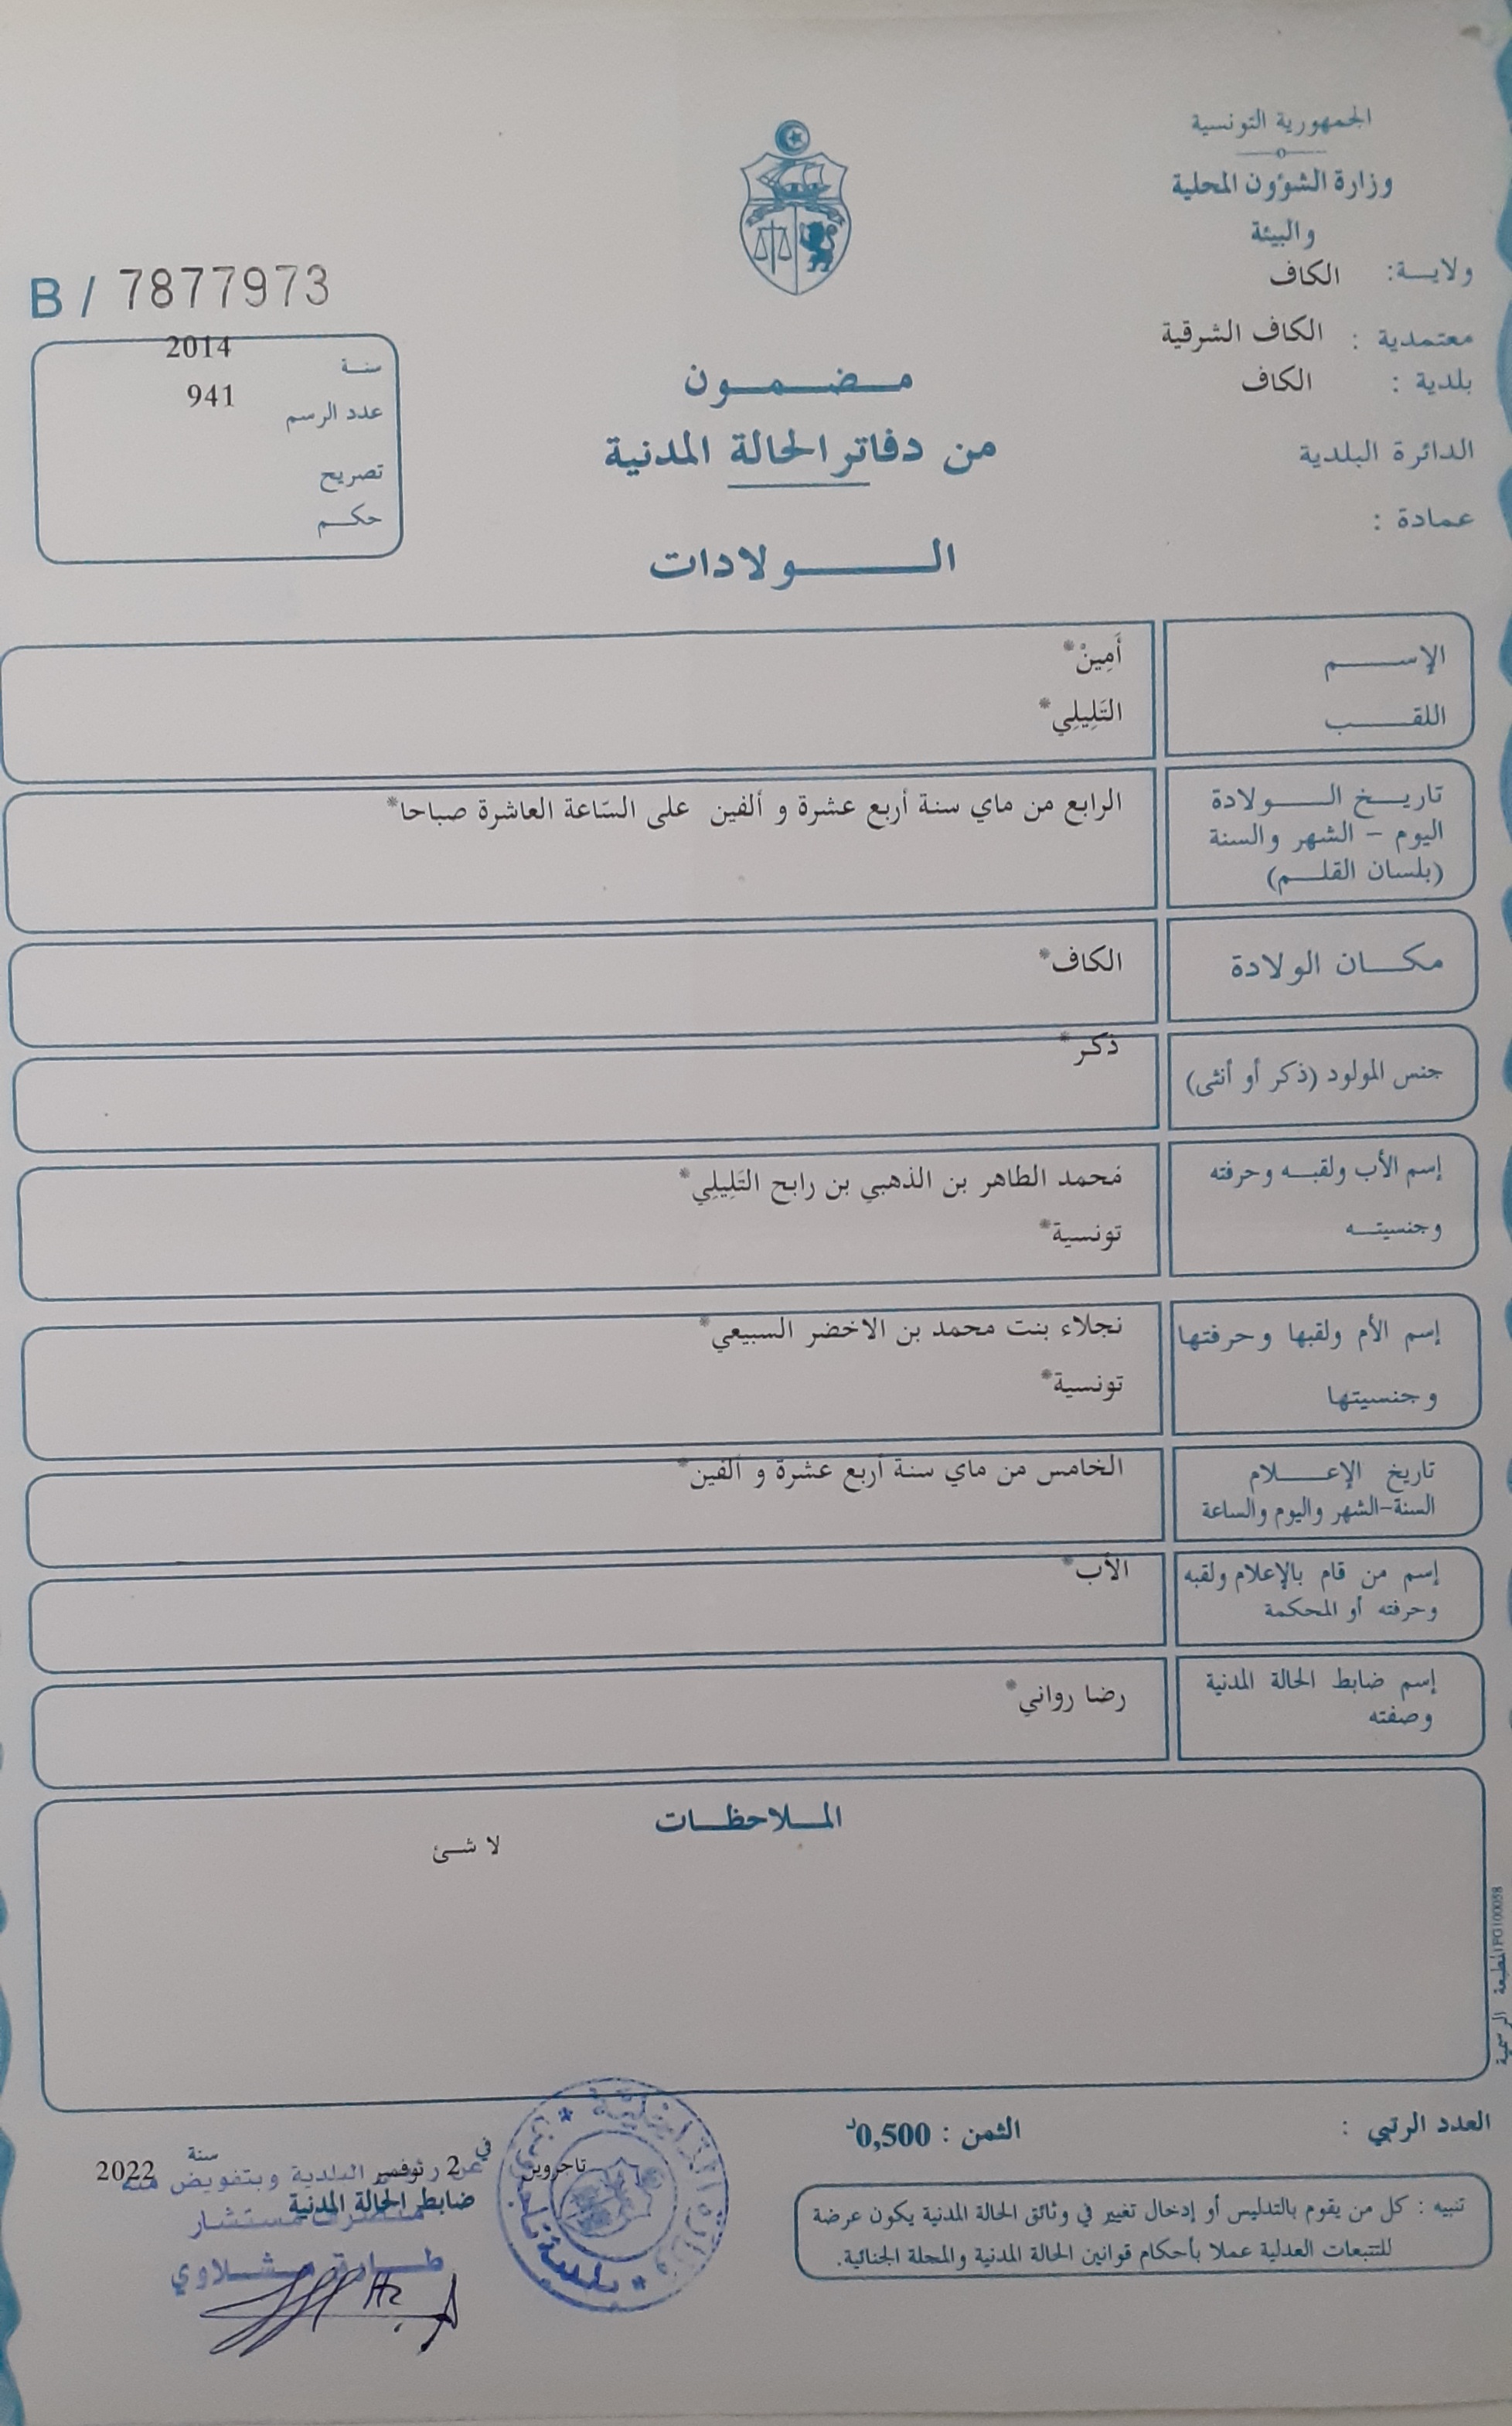 الجمهورية التونسية
وزارة الشؤون المحلية
والبيئة
ولايـة: الكاف
معتمدية : الكاف الشرقية
بلدية : الكاف
الدائرة البلدية
عمادة :
B / 7877973
سنـة 2014
عدد الرسم 941
تصريح
حكـم
مـضـمـون
من دفاتر الحالة المدنية
الـولادات
الإسـم أَمِينْ*
اللقـب التَلِيلِي*
تاريـخ الـولادة الرابع من ماي سنة أربع عشرة و ألفين على السّاعة العاشرة صباحا*
اليوم - الشهر والسنة
(بلسان القلـم)
مكـان الولادة الكاف*
جنس المولود (ذكر أو أنثى) ذكر*
إسم الأب ولقبـه وحرفته مُحمد الطاهر بن الذهبي بن رابح التَلِيلِي*
وجنسيتـه تونسية*
إسم الأم ولقبها وحرفتها نجلاء بنت محمد بن الاخضر السبيعي*
وجنسيتها تونسية*
تاريخ الإعـلام الخامس من ماي سنة أربع عشرة و ألفين*
السنة-الشهر واليوم والساعة
إسم من قام بالإعلام ولقبه الأب*
وحرفته أو المحكمة
إسم ضابط الحالة المدنية رضا رواني*
وصفته
المـلاحظـات
لا شئ
المطبعة الرسمية IFG100058
العدد الرتبي :
الثمن : 0,500د
تاجروين في 2 نوفمبر سنة 2022
البلدية وبتفويض منه
ضابط الحالة المدنية
مستشار
طـارق مـشـلاوي
تنبيه : كل من يقوم بالتدليس أو إدخال تغيير في وثائق الحالة المدنية يكون عرضة
للتتبعات العدلية عملا بأحكام قوانين الحالة المدنية والمجلة الجنائية.